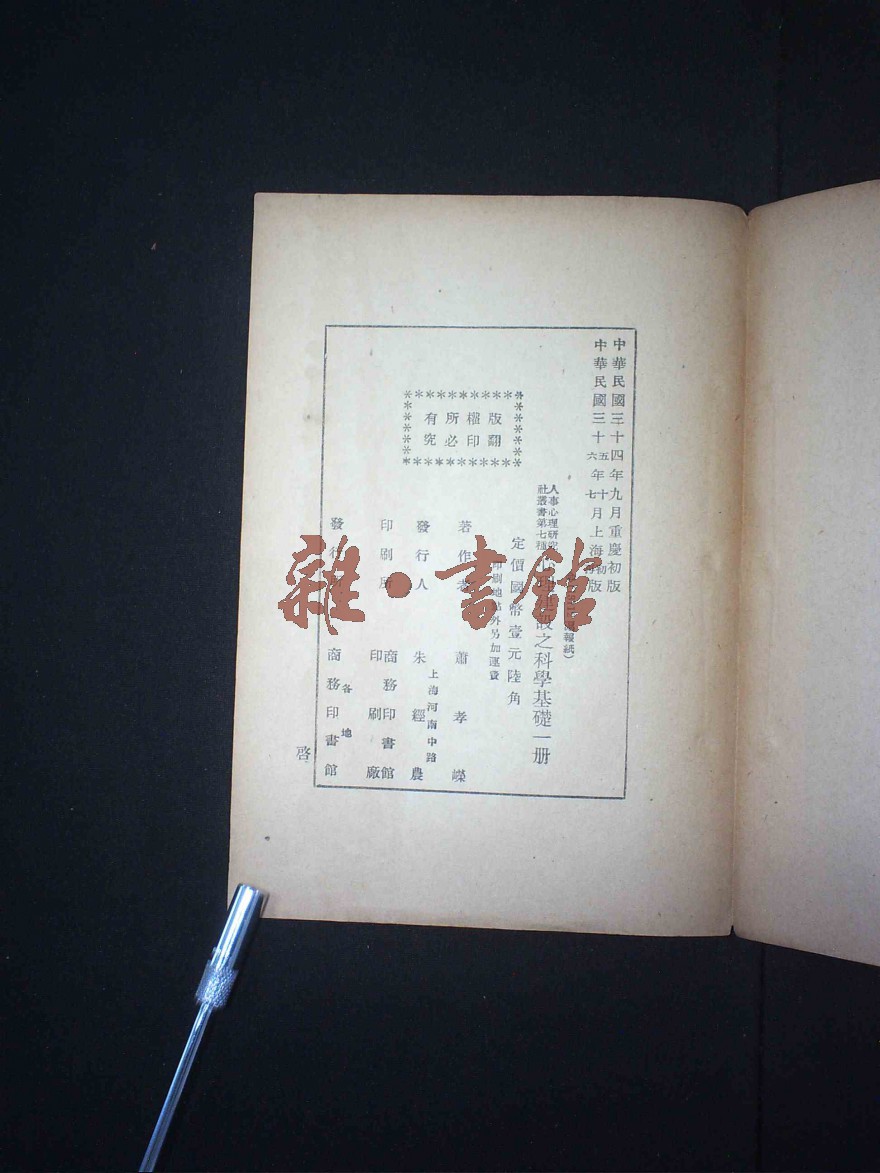 中華民國三十四年九月重慶初版
中華民國三十五年十月上海初版
六 七
人事心理研究
社叢書第七種
之科學基礎一册
報紙)
定價國幣壹元陸角
印刷地點外另加運費
版權所有
翻印必究
著作者 蕭孝嶸
發行人 朱經農
上海河南中路
印刷所 商務印書館
印刷廠
發行 商務印書館
各地
啓
雜·書館